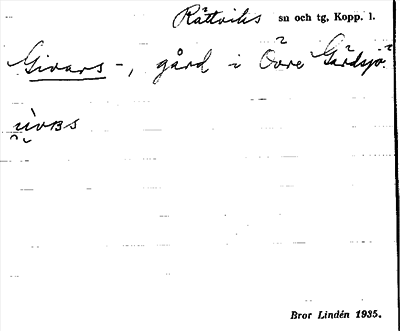 Rättviks sn och tg, Kopp. l.
Givars -, gård i Övre Gärdsjö.
Bror Lindén 1935.